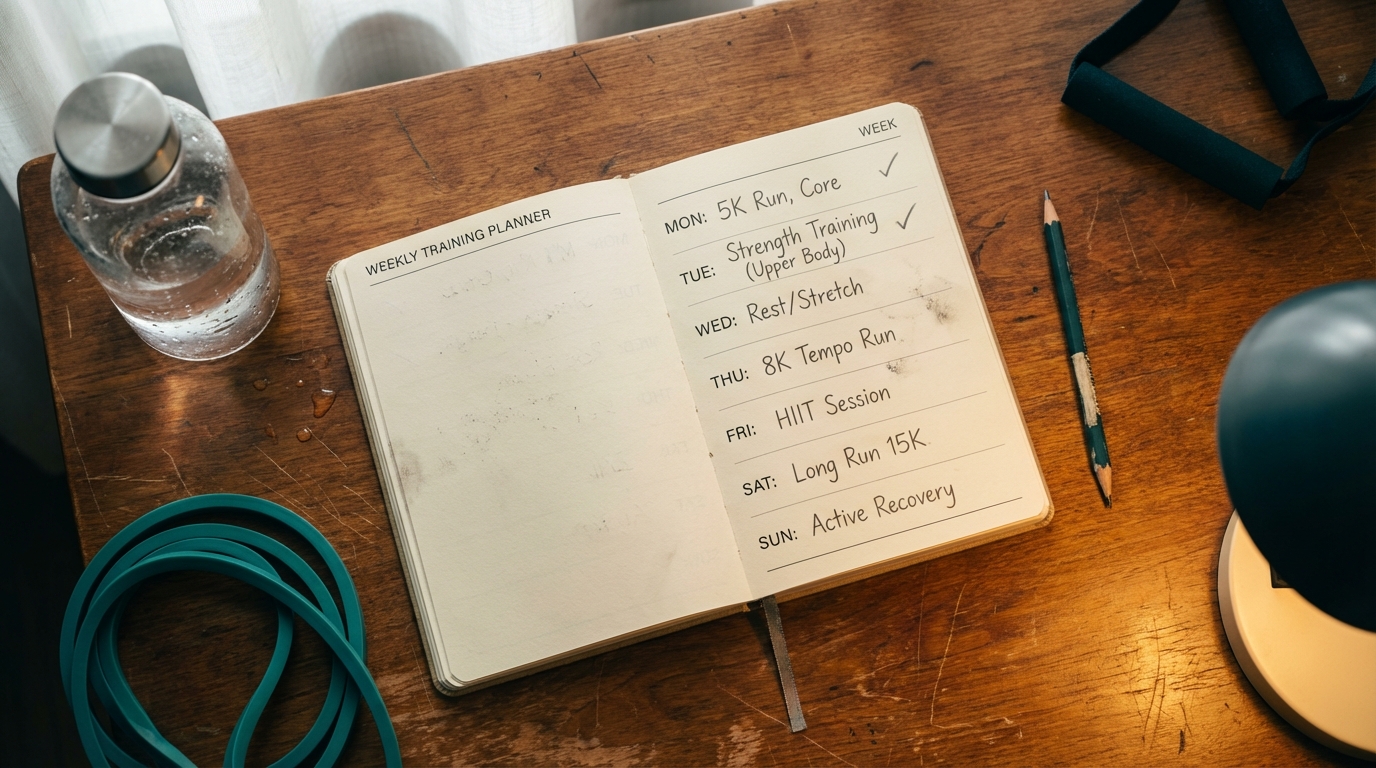 WEEKLY TRAINING PLANNER
WEEK
MON: 5K Run, Core ✓
TUE: Strength Training ✓
(Upper Body)
WED: Rest/Stretch
THU: 8K Tempo Run
FRI: HIIT Session
SAT: Long Run 15K
SUN: Active Recovery